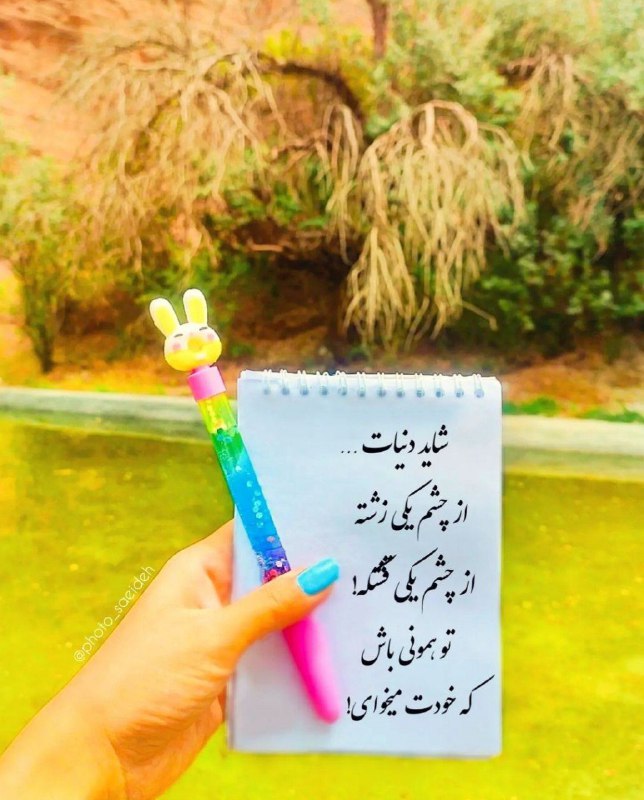 شاید دنیات ...
از چشم یکی زشته
از چشم یکی قشنگه!
تو همونی باش
که خودت میخوای!
@photo_saeideh